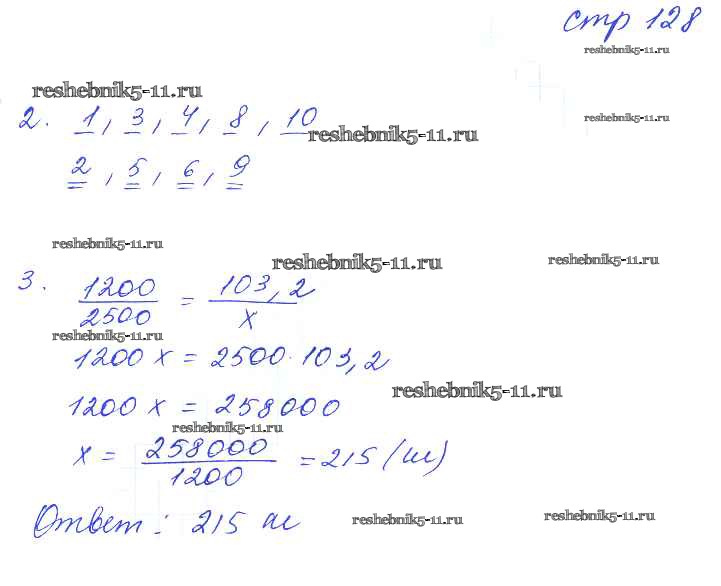 стр 128
reshebnik5-11.ru
reshebnik5-11.ru
2. 1, 3, 4, 8, 10
reshebnik5-11.ru
reshebnik5-11.ru
2, 5, 6, 9
reshebnik5-11.ru
reshebnik5-11.ru
reshebnik5-11.ru
3. 1200/2500 = 103,2/x
reshebnik5-11.ru
1200 x = 2500 · 103,2
reshebnik5-11.ru
1200 x = 258000
reshebnik5-11.ru
x = 258000/1200 = 215 (м)
Ответ: 215 м
reshebnik5-11.ru
reshebnik5-11.ru